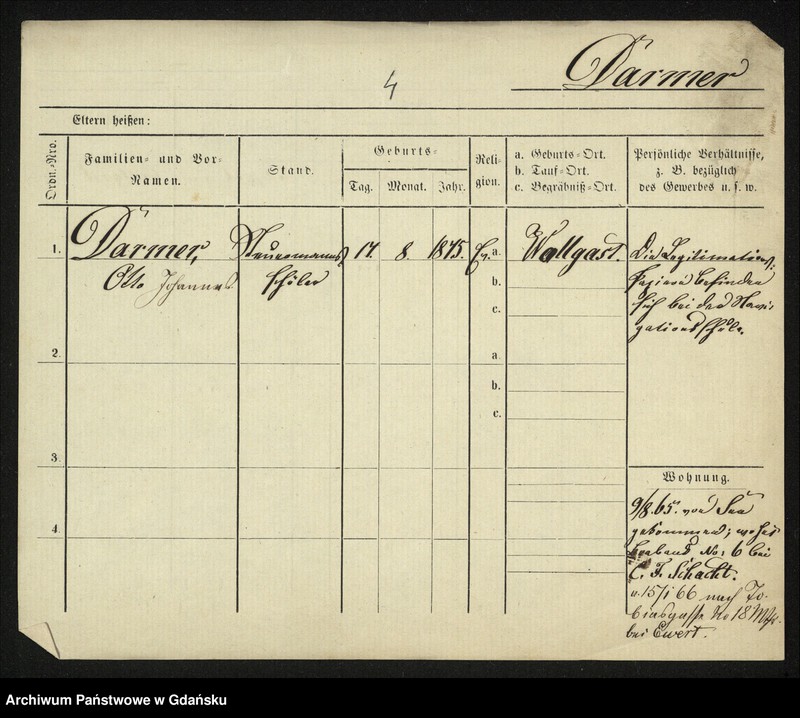 Darmer
4
Eltern heißen:
Ordn.-Nro.
Familien- und Vor-
Namen.
Stand.
Geburts-
Tag. Monat. Jahr.
Reli-
gion.
a. Geburts-Ort.
b. Tauf-Ort.
c. Begräbniß-Ort.
Persönliche Verhältnisse,
z. B. bezüglich
des Gewerbes u. s. w.
1. Darmer, Steuermanns 17. 8. 1845. Ev. a. Wollgast. Die Legitimations-
Otto Johannes schüler b. Papiere befinden
c. sich bei der Navi-
gationsschule.
2. a.
b.
c.
3.
Wohnung.
9/8.65. von See
4. gekommen; wohnt
No: 6 bei
C. F. Schacht.
u. 15/1 66 nach To-
biasgasse No 18
bei Ewert.
Archiwum Państwowe w Gdańsku